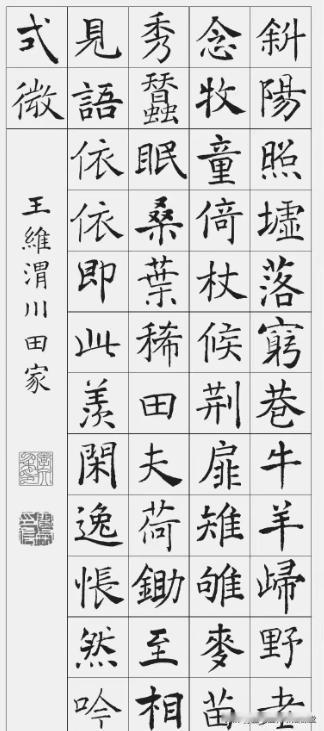 斜陽照墟落窮巷牛羊歸野老
念牧童倚杖候荆扉雉雊麥苗
秀蠶眠桑葉稀田夫荷鋤至相
見語依依即此羨閑逸悵然吟
式微
王維渭川田家